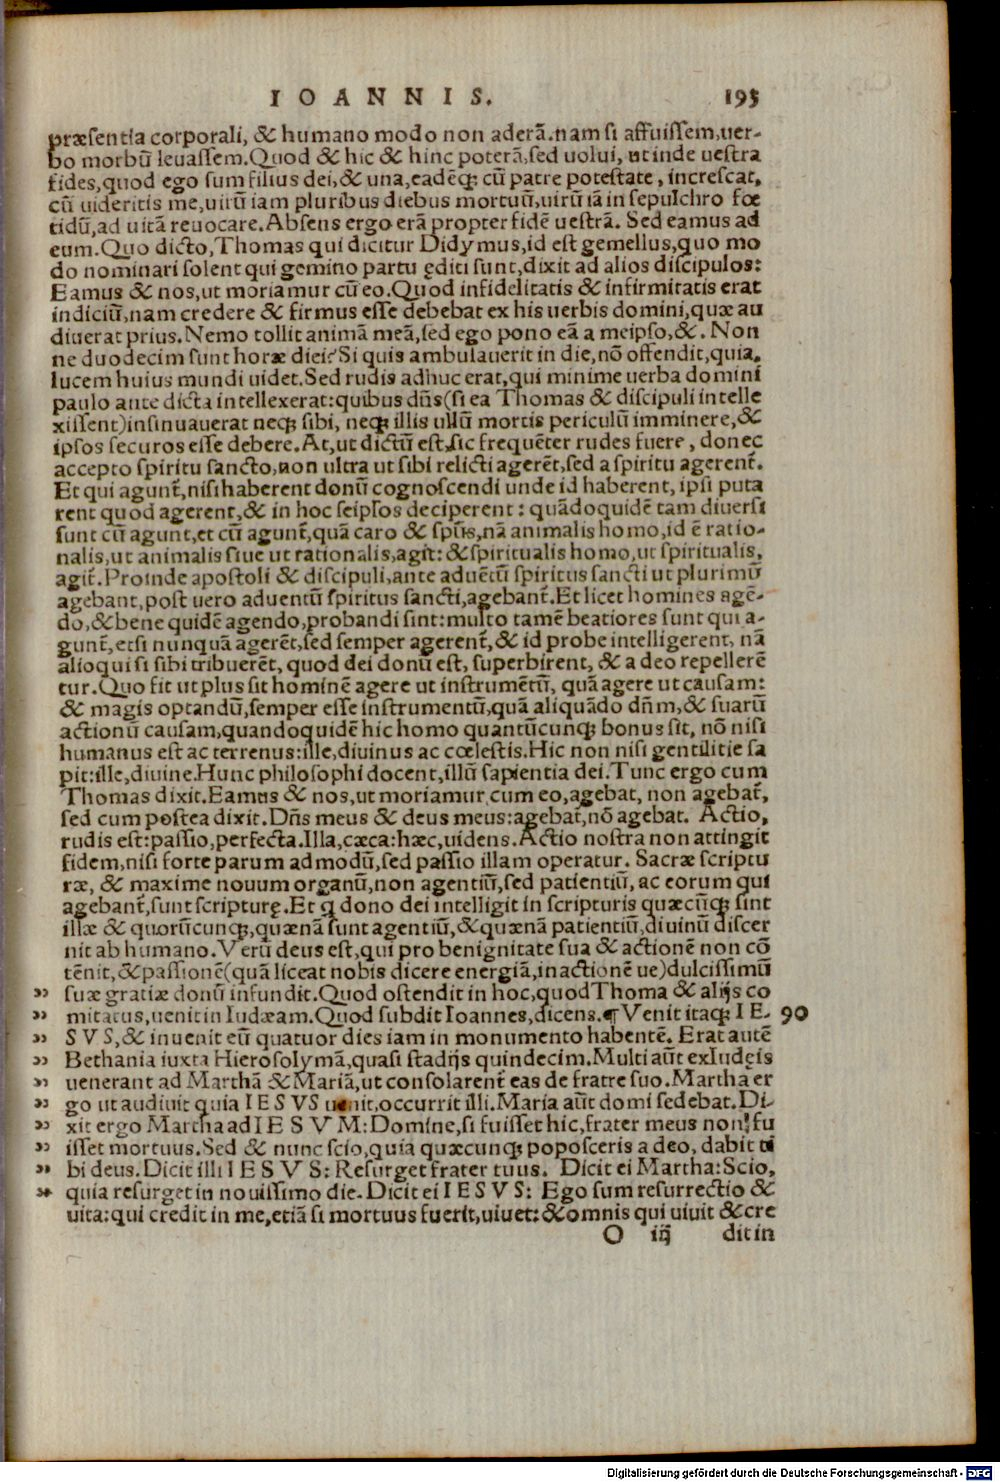 IOANNIS. 195
præsentia corporali, & humano modo non aderã. nam si affuissem, uer-
bo morbũ leuassem. Quod & hic & hinc poterã, sed uolui, ut inde uestra
fides, quod ego sum filius dei, & una, eadẽq; cũ patre potestate, increscat,
cũ uideritis me, uirũ iam pluribus diebus mortuũ, uirũ iã in sepulchro fœ
tidũ, ad uitã reuocare. Absens ergo erã propter fidẽ uestrã. Sed eamus ad
eum. Quo dicto, Thomas qui dicitur Didymus, id est gemellus, quo mo
do nominari solent qui gemino partu ęditi sunt, dixit ad alios discipulos:
Eamus & nos, ut moriamur cũ eo. Quod infidelitatis & infirmitatis erat
indiciũ, nam credere & firmus esse debebat ex his uerbis domini, quæ au
diuerat prius. Nemo tollit animã meã, sed ego pono eã a meipso, &. Non
ne duodecim sunt horæ diei? Si quis ambulauerit in die, nõ offendit, quia,
lucem huius mundi uidet. Sed rudis adhuc erat, qui minime uerba domini
paulo ante dicta intellexerat: quibus dñs (si ea Thomas & discipuli intelle
xissent) insinuauerat neq; sibi, neq; illis ullũ mortis periculũ imminere, &
ipsos securos esse debere. At, ut dictũ est, sic frequẽter rudes fuere, donec
accepto spiritu sancto, non ultra ut sibi relicti agerẽt, sed a spiritu agerent̃.
Et qui agunt̃, nisi haberent donũ cognoscendi unde id haberent, ipsi puta
rent quod agerent, & in hoc seipsos deciperent: quãdoquidẽ tam diuersi
sunt cũ agunt, et cũ agunt̃, quã caro & spũs, nã animalis homo, id ẽ ratio-
nalis, ut animalis siue ut rationalis, agit: & spiritualis homo, ut spiritualis,
agit̃. Proinde apostoli & discipuli, ante aduẽtũ spiritus sancti ut plurimũ
agebant, post uero aduentũ spiritus sancti, agebant̃. Et licet homines agẽ-
do, & bene quidẽ agendo, probandi sint: multo tamẽ beatiores sunt qui a-
gunt̃, etsi nunquã agerẽt, sed semper agerent̃, & id probe intelligerent, nã
alioqui si sibi tribuerẽt, quod dei donũ est, superbirent, & a deo repellerẽ
tur. Quo fit ut plus sit hominẽ agere ut instrumẽtũ, quã agere ut causam:
& magis optandũ, semper esse instrumentũ, quã aliquãdo dñm, & suarũ
actionũ causam, quandoquidẽ hic homo quantũcunq; bonus sit, nõ nisi
humanus est ac terrenus: ille, diuinus ac cœlestis. Hic non nisi gentilitie sa
pit: ille, diuine. Hunc philosophi docent, illũ sapientia dei. Tunc ergo cum
Thomas dixit. Eamus & nos, ut moriamur cum eo, agebat, non agebat̃,
sed cum postea dixit. Dñs meus & deus meus: agebat̃, nõ agebat. Actio,
rudis est: passio, perfecta. Illa, cæca: hæc, uidens. Actio nostra non attingit
fidem, nisi forte parum admodũ, sed passio illam operatur. Sacræ scriptu
ræ, & maxime nouum organũ, non agentiũ, sed patientiũ, ac eorum qui
agebant̃, sunt scripturę. Et q̃ dono dei intelligit in scripturis quæcũq; sint
illæ & quorũcunq;, quænã sunt agentiũ, & quænã patientiũ, diuinũ discer
nit ab humano. Verũ deus est, qui pro benignitate sua & actionẽ non cõ
tẽnit, & passionẽ (quã liceat nobis dicere energiã, inactionẽ ue) dulcissimũ
" suæ gratiæ donũ infundit. Quod ostendit in hoc, quod Thoma & alijs co
" mitatus, uenit in Iudæam. Quod subdit Ioannes, dicens. ¶ Venit itaq; IE- 90
" SVS, & inuenit eũ quatuor dies iam in monumento habentẽ. Erat autẽ
" Bethania iuxta Hierosolymã, quasi stadijs quindecim. Multi aũt ex Iudęis
" uenerant ad Marthã & Mariã, ut consolarent̃ eas de fratre suo. Martha er
" go ut audiuit quia IESVS uenit, occurrit illi. Maria aũt domi sedebat. Di-
" xit ergo Martha ad IESVM: Domine, si fuisset hic, frater meus non fu
" isset mortuus. Sed & nunc scio, quia quæcunq; poposceris a deo, dabit ti
" bi deus. Dicit illi IESVS: Resurget frater tuus. Dicit ei Martha: Scio,
" quia resurget in nouissimo die. Dicit ei IESVS: Ego sum resurrectio &
uita: qui credit in me, etiã si mortuus fuerit, uiuet: & omnis qui uiuit & cre
O iij ditin
Digitalisierung gefördert durch die Deutsche Forschungsgemeinschaft - DFG